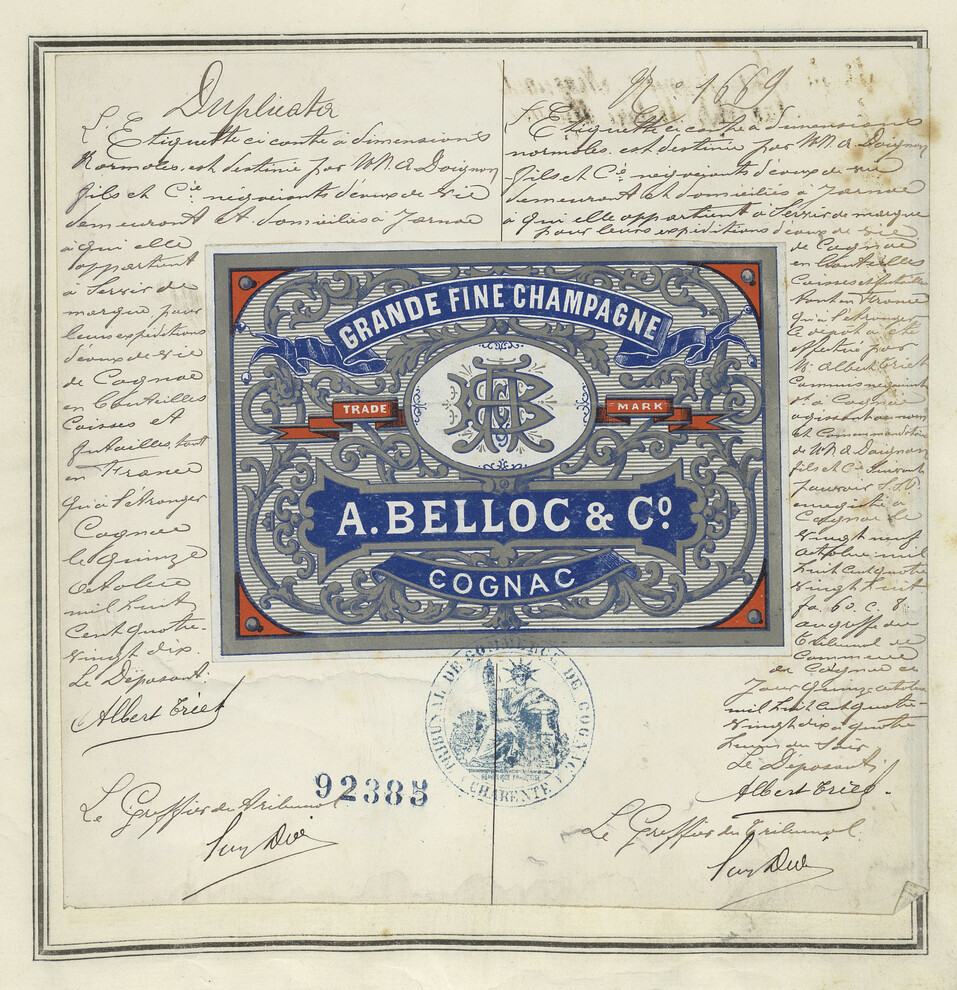 Duplicata
L'Etiquette ci contre à dimensions
Normales, est destinée par MM. A. Doignon
fils et Cie négociants d'eaux de vie
demeurant et domiciliés à Jarnac
à qui elle
appartient
à Servir de
marque pour
leurs expéditions
d'eaux de vie
de Cognac
en bouteilles
Caisses et
futailles tant
en France
qu'à l'étranger
Cognac
le quinze
octobre
mil huit
cent quatre-
vingt dix.
Le Déposant:
Albert Triet
Le Greffier du Tribunal
GRANDE FINE CHAMPAGNE
TRADE MARK
A. BELLOC & Co.
COGNAC
TRIBUNAL DE COMMERCE DE COGNAC
CHARENTE
92385
No 1669
L'Etiquette ci contre à dimensions
normales, est destinée par MM. A. Doignon
fils et Cie négociants d'eaux de vie
demeurant et domiciliés à Jarnac
à qui elle appartient à Servir de marque
pour leurs expéditions d'eaux de vie
de Cognac
en bouteilles
Caisses et futailles
tant en France
qu'à l'étranger
Le dépôt a été
effectué par
M. Albert Triet
Commis négociant
à Cognac
agissant au nom
et Comme mandataire
de MM. A. Doignon
fils et Cie suivant
pouvoir S.S.P.
enregistré à
Cognac le
vingt neuf
octobre mil
huit cent quatre
vingt huit
fo. 60. c. 8.
au greffe du
Tribunal de
Commerce
de Cognac ce
jour quinze octobre
mil huit cent quatre-
vingt dix à quatre
heures du Soir
Le Déposant,
Albert Triet.
Le Greffier du Tribunal.